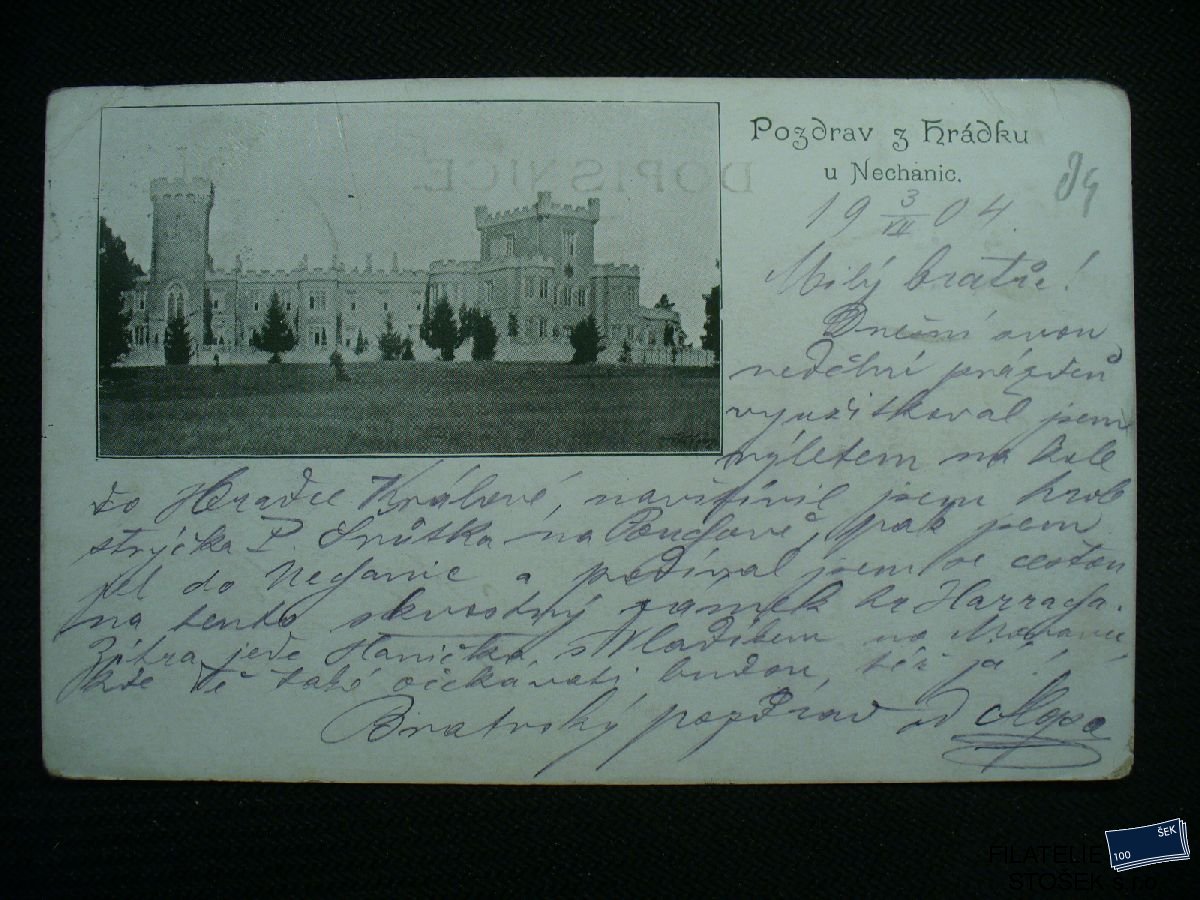 Pozdrav z Hrádku
u Nechanic.
DOPISNICE.
19 3/VII 04.
Milý bratře!
Dnešní svou
nedělní prázdeň
využitkoval jsem
výletem na kole
do Hradce Králové, navštívil jsem hrob
strýčka P. Šrůtka na Pouchově, pak jsem
jel do Nechanic a podíval jsem se cestou
na tento skvostný zámek hr Harracha.
Zítra jede Hanička s Vladíkem na Moravu,
kde Tě také očekávati budou, též já!
Bratrský pozdrav od
ŠEK
100
FILATELIE
STOŠEK s.r.o.